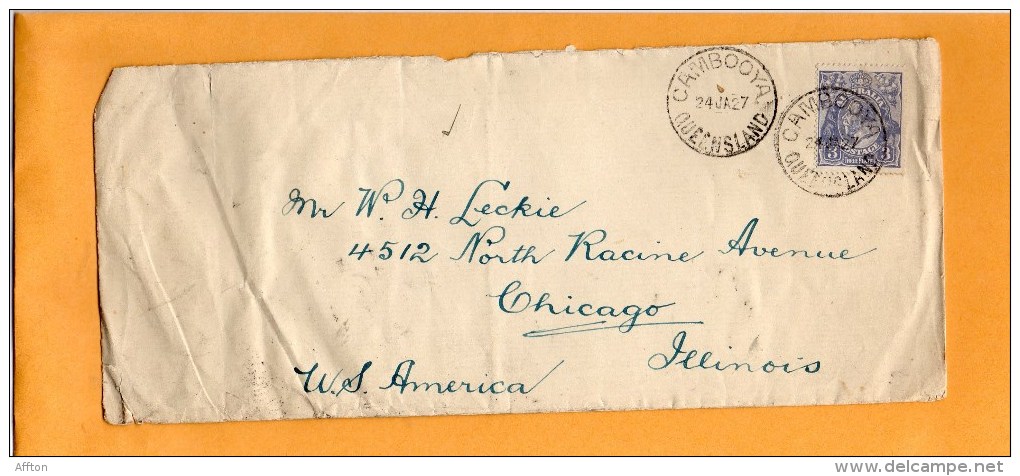 CAMBOOYA
24 JA 27
QUEENSLAND
CAMBOOYA
QUEENSLAND
POSTAGE
3 3
Mr W. H. Leckie
4512 North Racine Avenue
Chicago
Illinois
W.S. America
Affton
delcampe.net